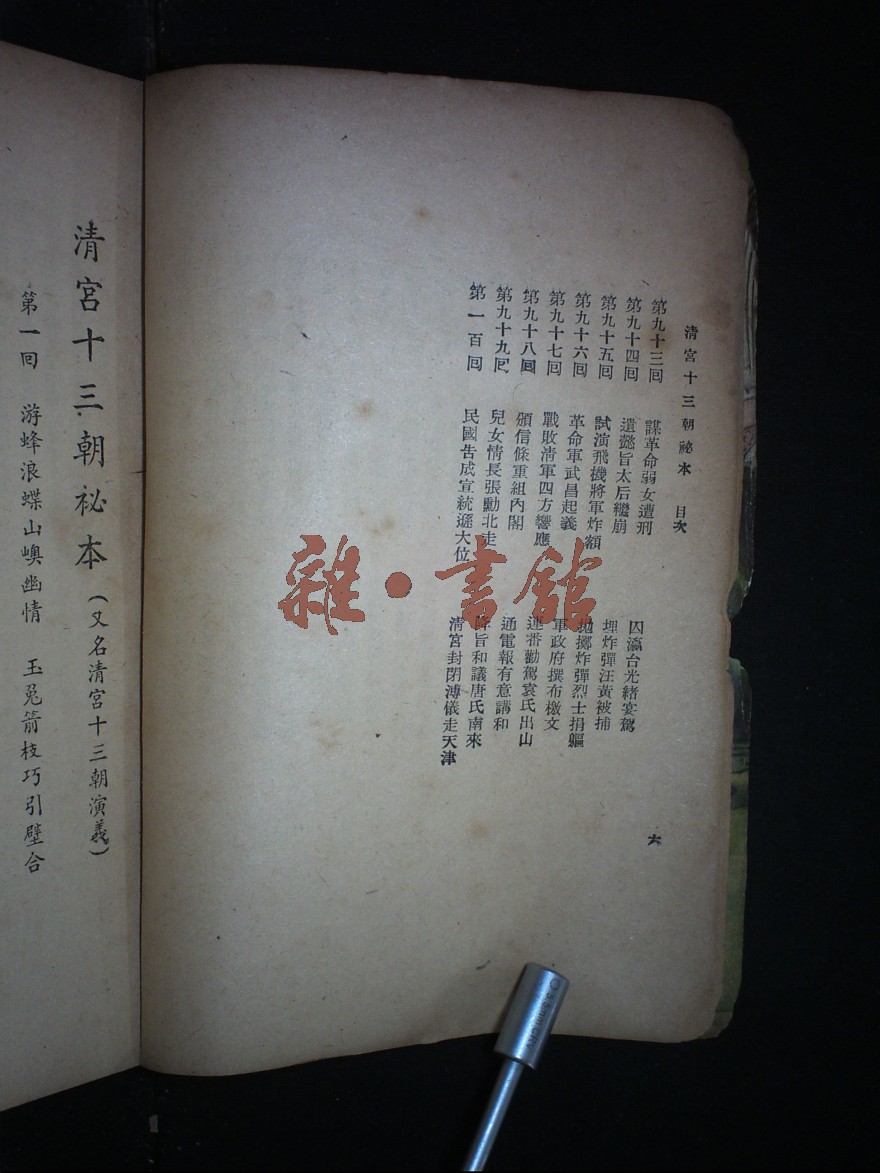 清宮十三朝祕本 目次
第九十三回 謀革命弱女遭刑 囚瀛台光緒宴駕
第九十四回 遺懿旨太后繼崩 埋炸彈汪黃被捕
第九十五回 試演飛機將軍炸額 拋擲炸彈烈士捐軀
第九十六回 革命軍武昌起義 軍政府撰布檄文
第九十七回 戰敗清軍四方響應 連番勸駕袁氏出山
第九十八回 頒信條重組內閣 通電報有意講和
第九十九回 兒女情長張勳北走 降旨和議唐氏南來
第一百回 民國告成宣統遜大位 清宮封閉溥儀走天津
六
清宮十三朝祕本(又名清宮十三朝演義)
第一回 游蜂浪蝶山嶴幽情 玉兔箭枝巧引壁合
雜·書館